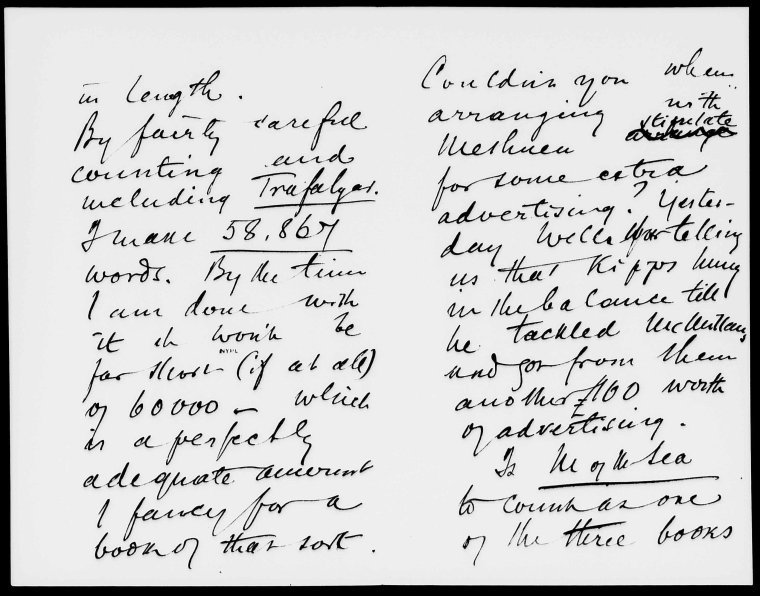 in length.
By fairly careful
counting and
including Trafalgar.
I make 58,867
words. By the time
I am done with
it it won't be
far short (if at all)
NYPL
of 60000 – which
is a perfectly
adequate amount
I fancy for a
book of that sort.
Couldn't you when
arranging with
Methuen arrange stipulate
for some extra
advertising? Yester-
day Wells was telling
us that Kipps hung
in the balance till
he tackled McMillans
and got from them
another £100 worth
of advertising.
Is M of the Sea
to count as one
of the three books